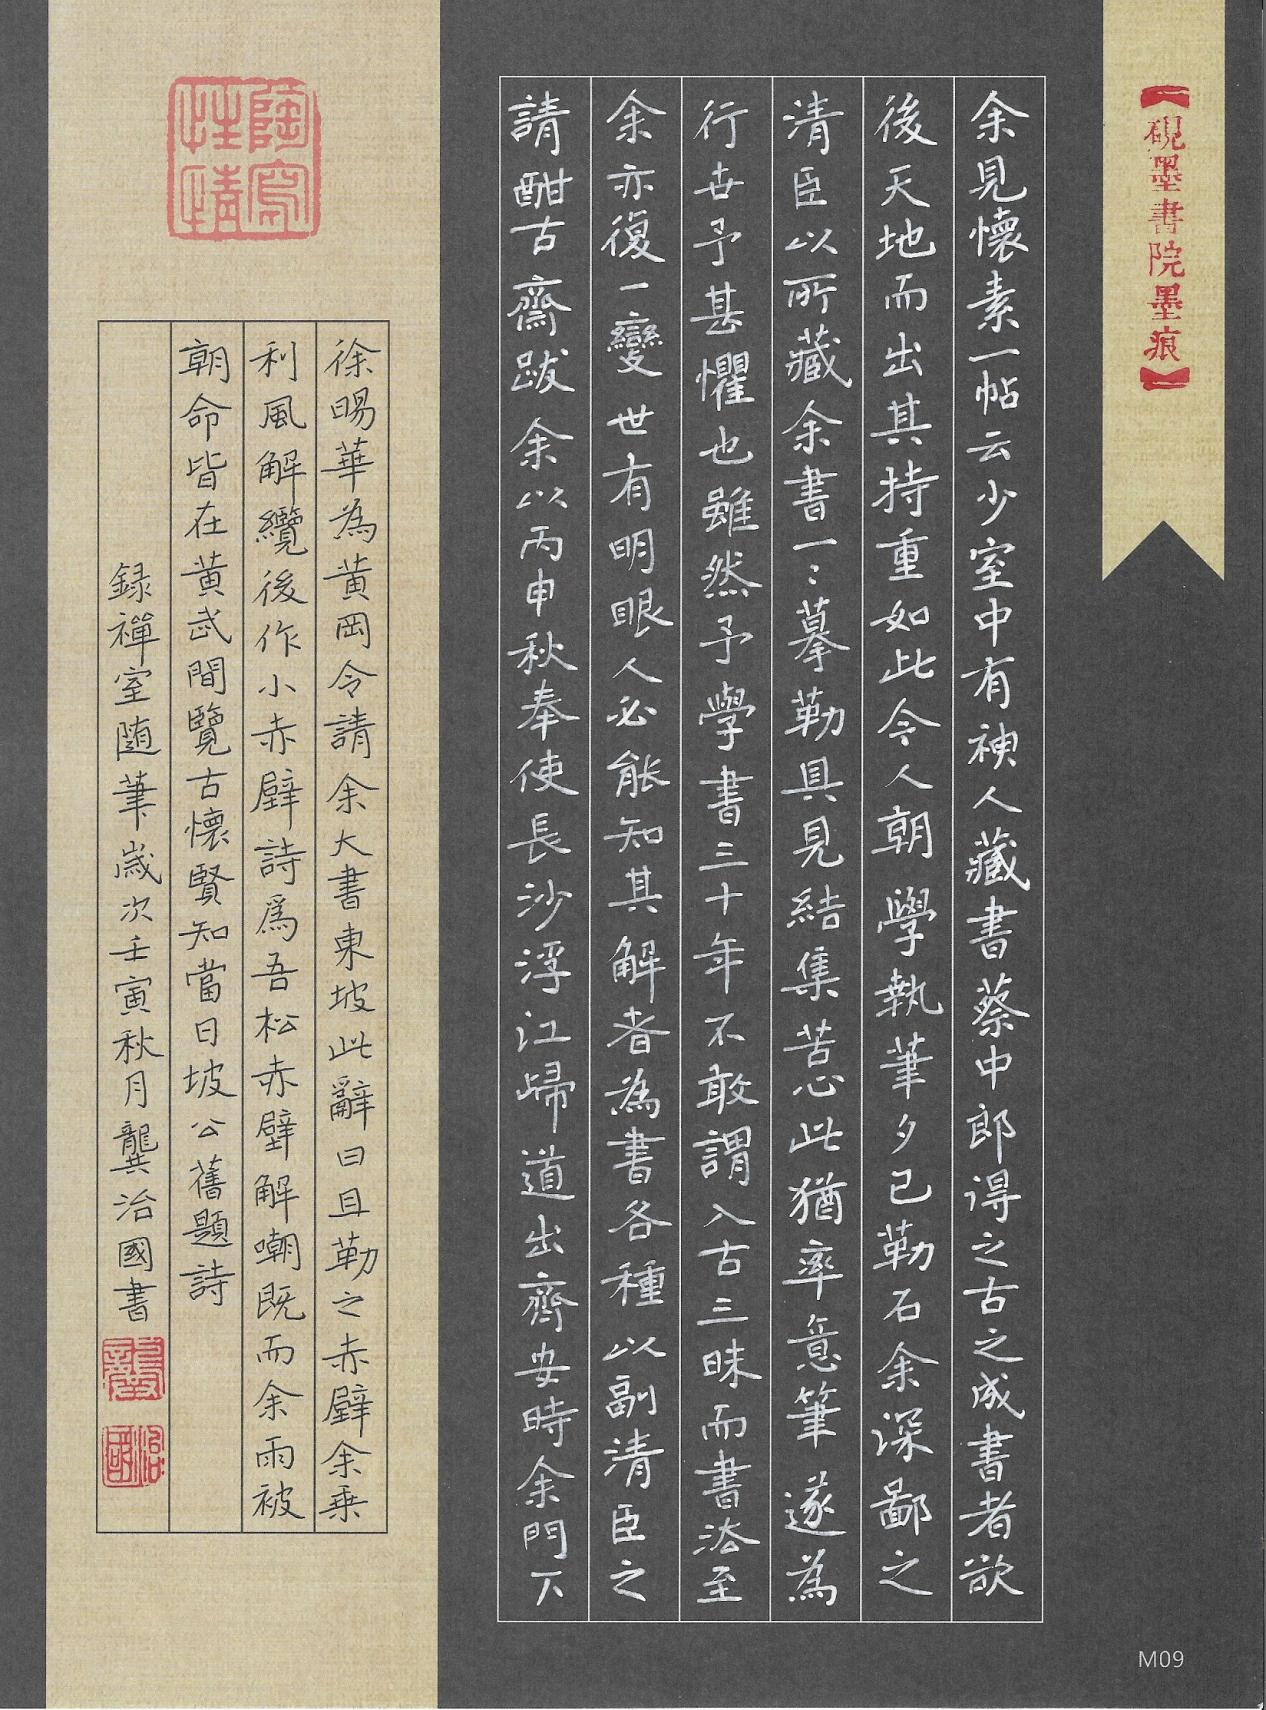 【硯墨書院墨痕】
余見懷素一帖云少室中有神人藏書蔡中郎得之古之成書者欲
後天地而出其持重如此今人朝學執筆夕已勒石余深鄙之
清臣以所藏余書一〻摹勒具見結集苦心此猶率意筆遂為
行世予甚懼也雖然予學書三十年不敢謂入古三昧而書法至
余亦復一變世有明眼人必能知其解者為書各種以副清臣之
請酣古齋跋余以丙申秋奉使長沙浮江歸道出齊安時余門下
陶寫性情
徐暘華為黃岡令請余大書東坡此辭曰且勒之赤壁余乘
利風解纜後作小赤壁詩為吾松赤壁解嘲既而余雨被
朝命皆在黃武間覽古懷賢知當日坡公舊題詩
録禪室随筆歲次壬寅秋月龔治國書
龔
治國
M09